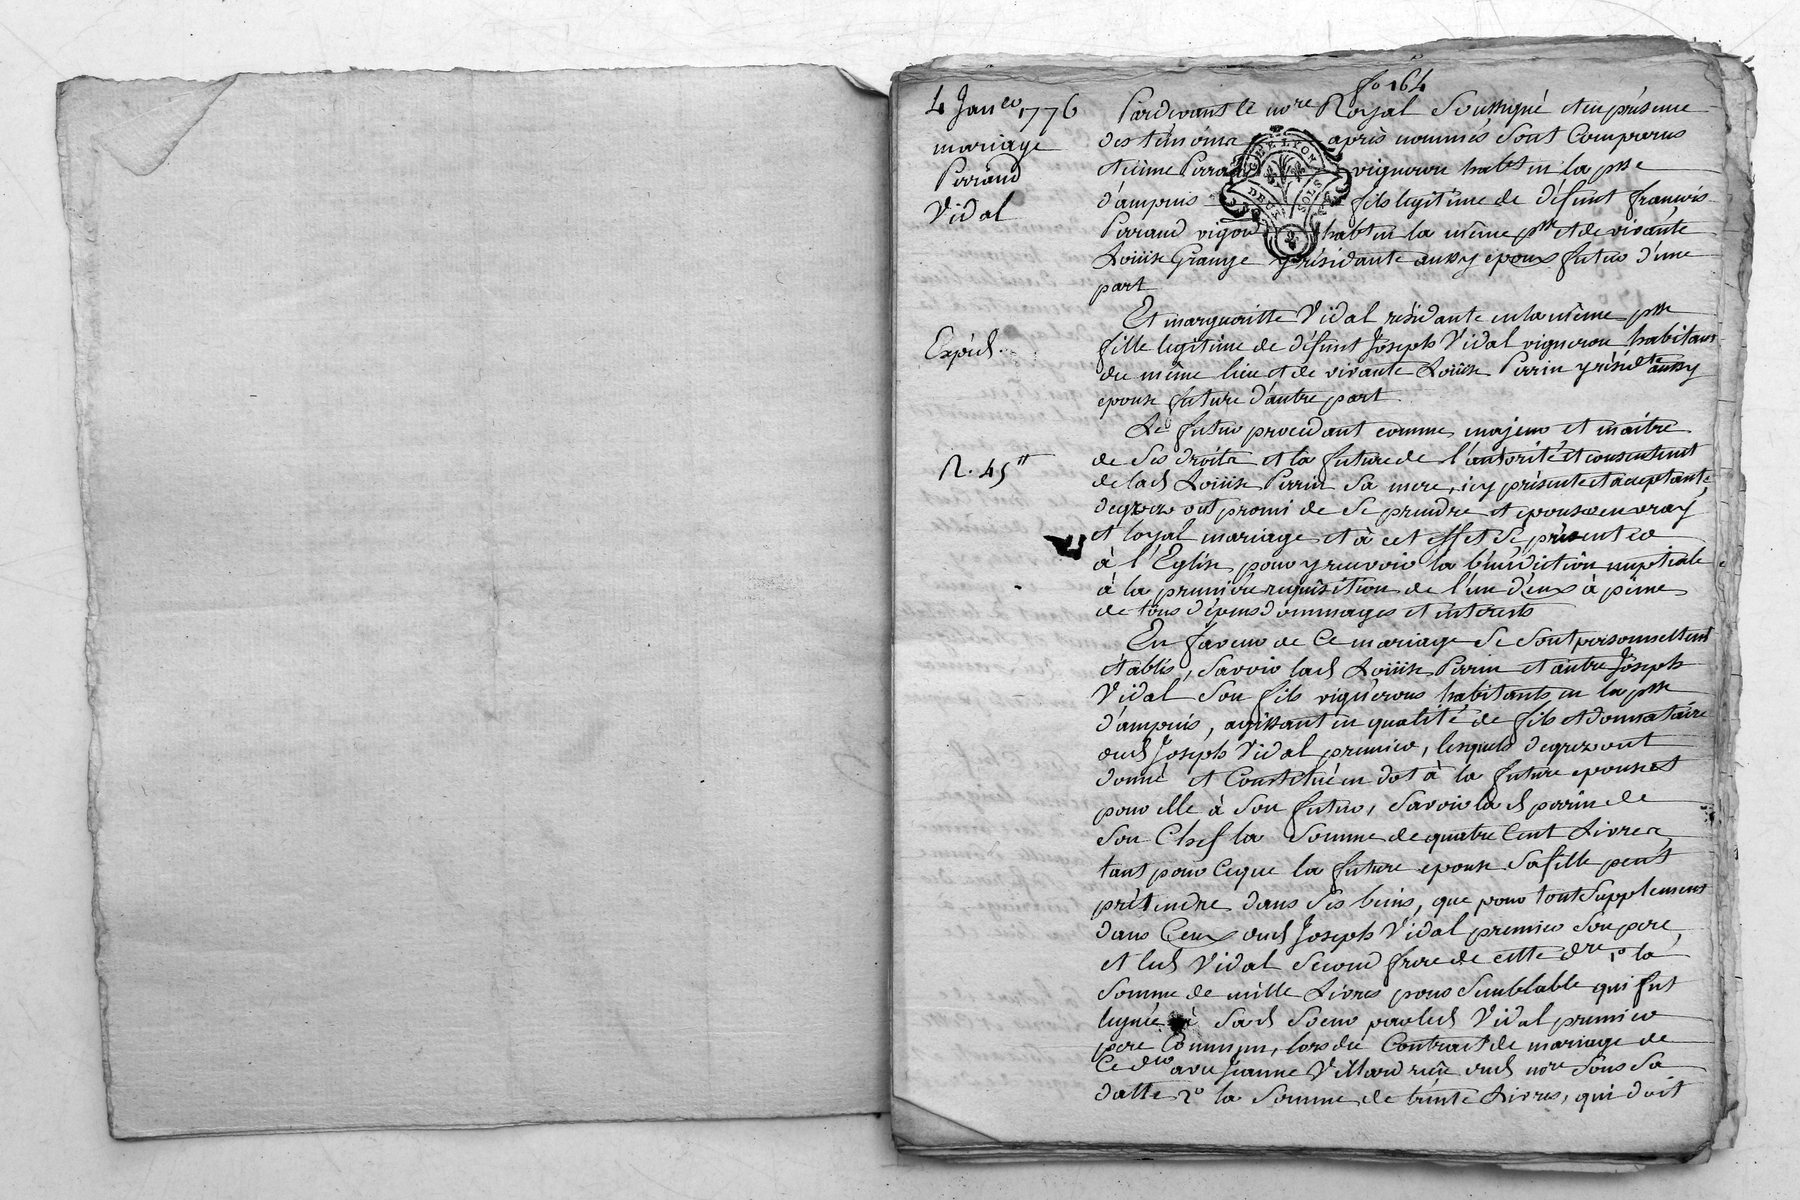 fo 164
4 Janer 1776
mariage
Perraud
Vidal
Expéd.
R. 45 tt
Pardevant le nore Royal Soussigné et en présence
des témoins après nommés sont Comparus
etienne Perraud vigneron habt en la psse
d'ampuis fils legitime de défunt françois
Perraud vigon habt en la même psse et de vivante
Loüise Grange y résidante aussy epoux futur d'une
part
Et margueritte Vidal résidante en la même psse
fille legitime de défunt Joseph Vidal vigneron habitant
du même lieu et de vivante Loüise Perrin y résidte aussy
epouse future d'autre part
Le futur procedant comme majeur et maitre
de ses droits et la future de l'autorité et consentement
de lad Loüise Perrin sa mere, icy présente et acceptante,
de grez ont promi de se prendre et epouser en vray
et loyal mariage et à cet effet se présenter
à l'Eglise pour y recevoir la bénédiction nuptiale
à la premiere requisition de l'un d'eux à peine
de tous dépens dommages et interests
En faveur de Ce mariage se sont personnellemt
établis, savoir lad Loüise Perrin et autre Joseph
Vidal son fils vignerons habitants en la psse
d'ampuis, agissant en qualité de fils et donnataire
dud Joseph Vidal premier, lesquels de grez ont
donné et Constitué en dot à la future epouse et
pour elle à son futur, savoir lad perrin de
son Chef la somme de quatre Cent Livres,
tant pour Ceque la future epouse sa fille peut
prétendre dans ses biens, que pour tout supplement
dans Ceux dud Joseph Vidal premier son pere,
et led Vidal second frere de cette dre 1o la
somme de mille Livres pour semblable qui fut
leguée à sad soeur par led Vidal premier
pere Commun, lors du Contract de mariage de
Ce der avec Jeanne Villard reçu dud nore sous sa
datte 2o la somme de trente Livres, qui doit